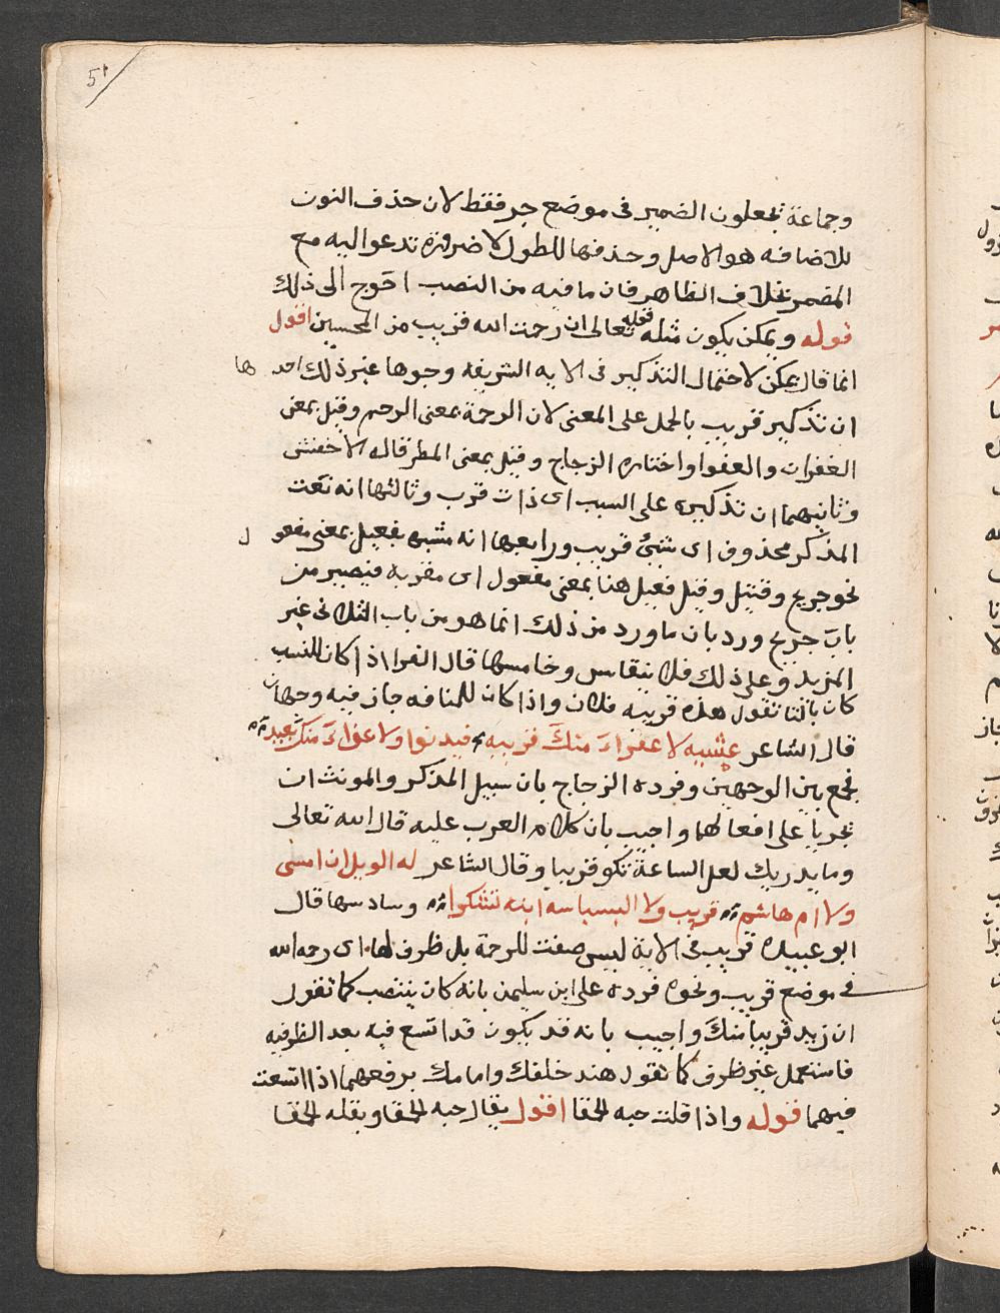 51
وجماعة يجعلون الضمير فى موضع جر فقط لان حذف النون
للاضافه هو الاصل وحذفها للطول لا ضرورة تدعوا اليه مع
المضمر بخلاف الظاهر فان ما فيه من النصب احوج الى ذلك
قوله ويمكن يكون مثله قوله تعالى ان رحمت الله قريب من المحسنين اقول
انما قال يمكن لاحتمال التذكير فى الايه الشريفه وجوها غير ذلك احد ها
ان تذكير قريب بالحمل على المعنى لان الرحمة بمعنى الرحم وقيل بمعنى
الغفران والعفوا واختاره الزجاج وقيل بمعنى المطر قاله الاخفش
وثانيهما ان تذكيره على السبب اى ذات قرب وثالثها انه نعت
المذكر محذوف اى شىء قريب ورابعها انه مشبه بفعيل بمعنى مفعو ل
نحو جريح وقتيل وقيل فعيل هنا بمعنى مفعول اى مقربه فيصير من
باب جريح ورد بان ما ورد من ذلك انما هو من باب الثلاثى غير
المزيد وعلى ذلك فلا ينقاس وخامسها قال الفرا اذا كان للنسب
كان بالتا تقول هذه قريبه فلان واذا كان للمسافه جاز فيه وجهان
قال الشاعر عشيه لا عفراء منك قريبه فيدنوا ولا عفراء منك بعيد
فجمع بين الوجهين وفرده الزجاج بان سبيل المذكر والمونث ان
يجريا على افعالهما واجيب بان كلام العرب عليه قال الله تعالى
وما يدريك لعل الساعة تكو قريبا وقال الشاعر له الويل ان امسى
ولا ام هاشم قريب ولا البسباسه ابنه تشكرا وسادسها قال
ابو عبيده قريب فى الاية ليس صفت للرحمة بل ظرف لها اى رحمه الله
فى موضع قريب ونحوه فرده على ابن سليمن بانه كان ينتصب كما تقول
ان زيد قريبا منك واجيب بانه قد يكون قد اتسع فيه بعد الظرفيه
فاستعمل غير ظرف كما تقول هند خلفك وامامك برفعهما اذا اتسعت
فيهما قوله واذا قلت حبه الحقا اقول يقال حبه الحقا وبقله الحقا